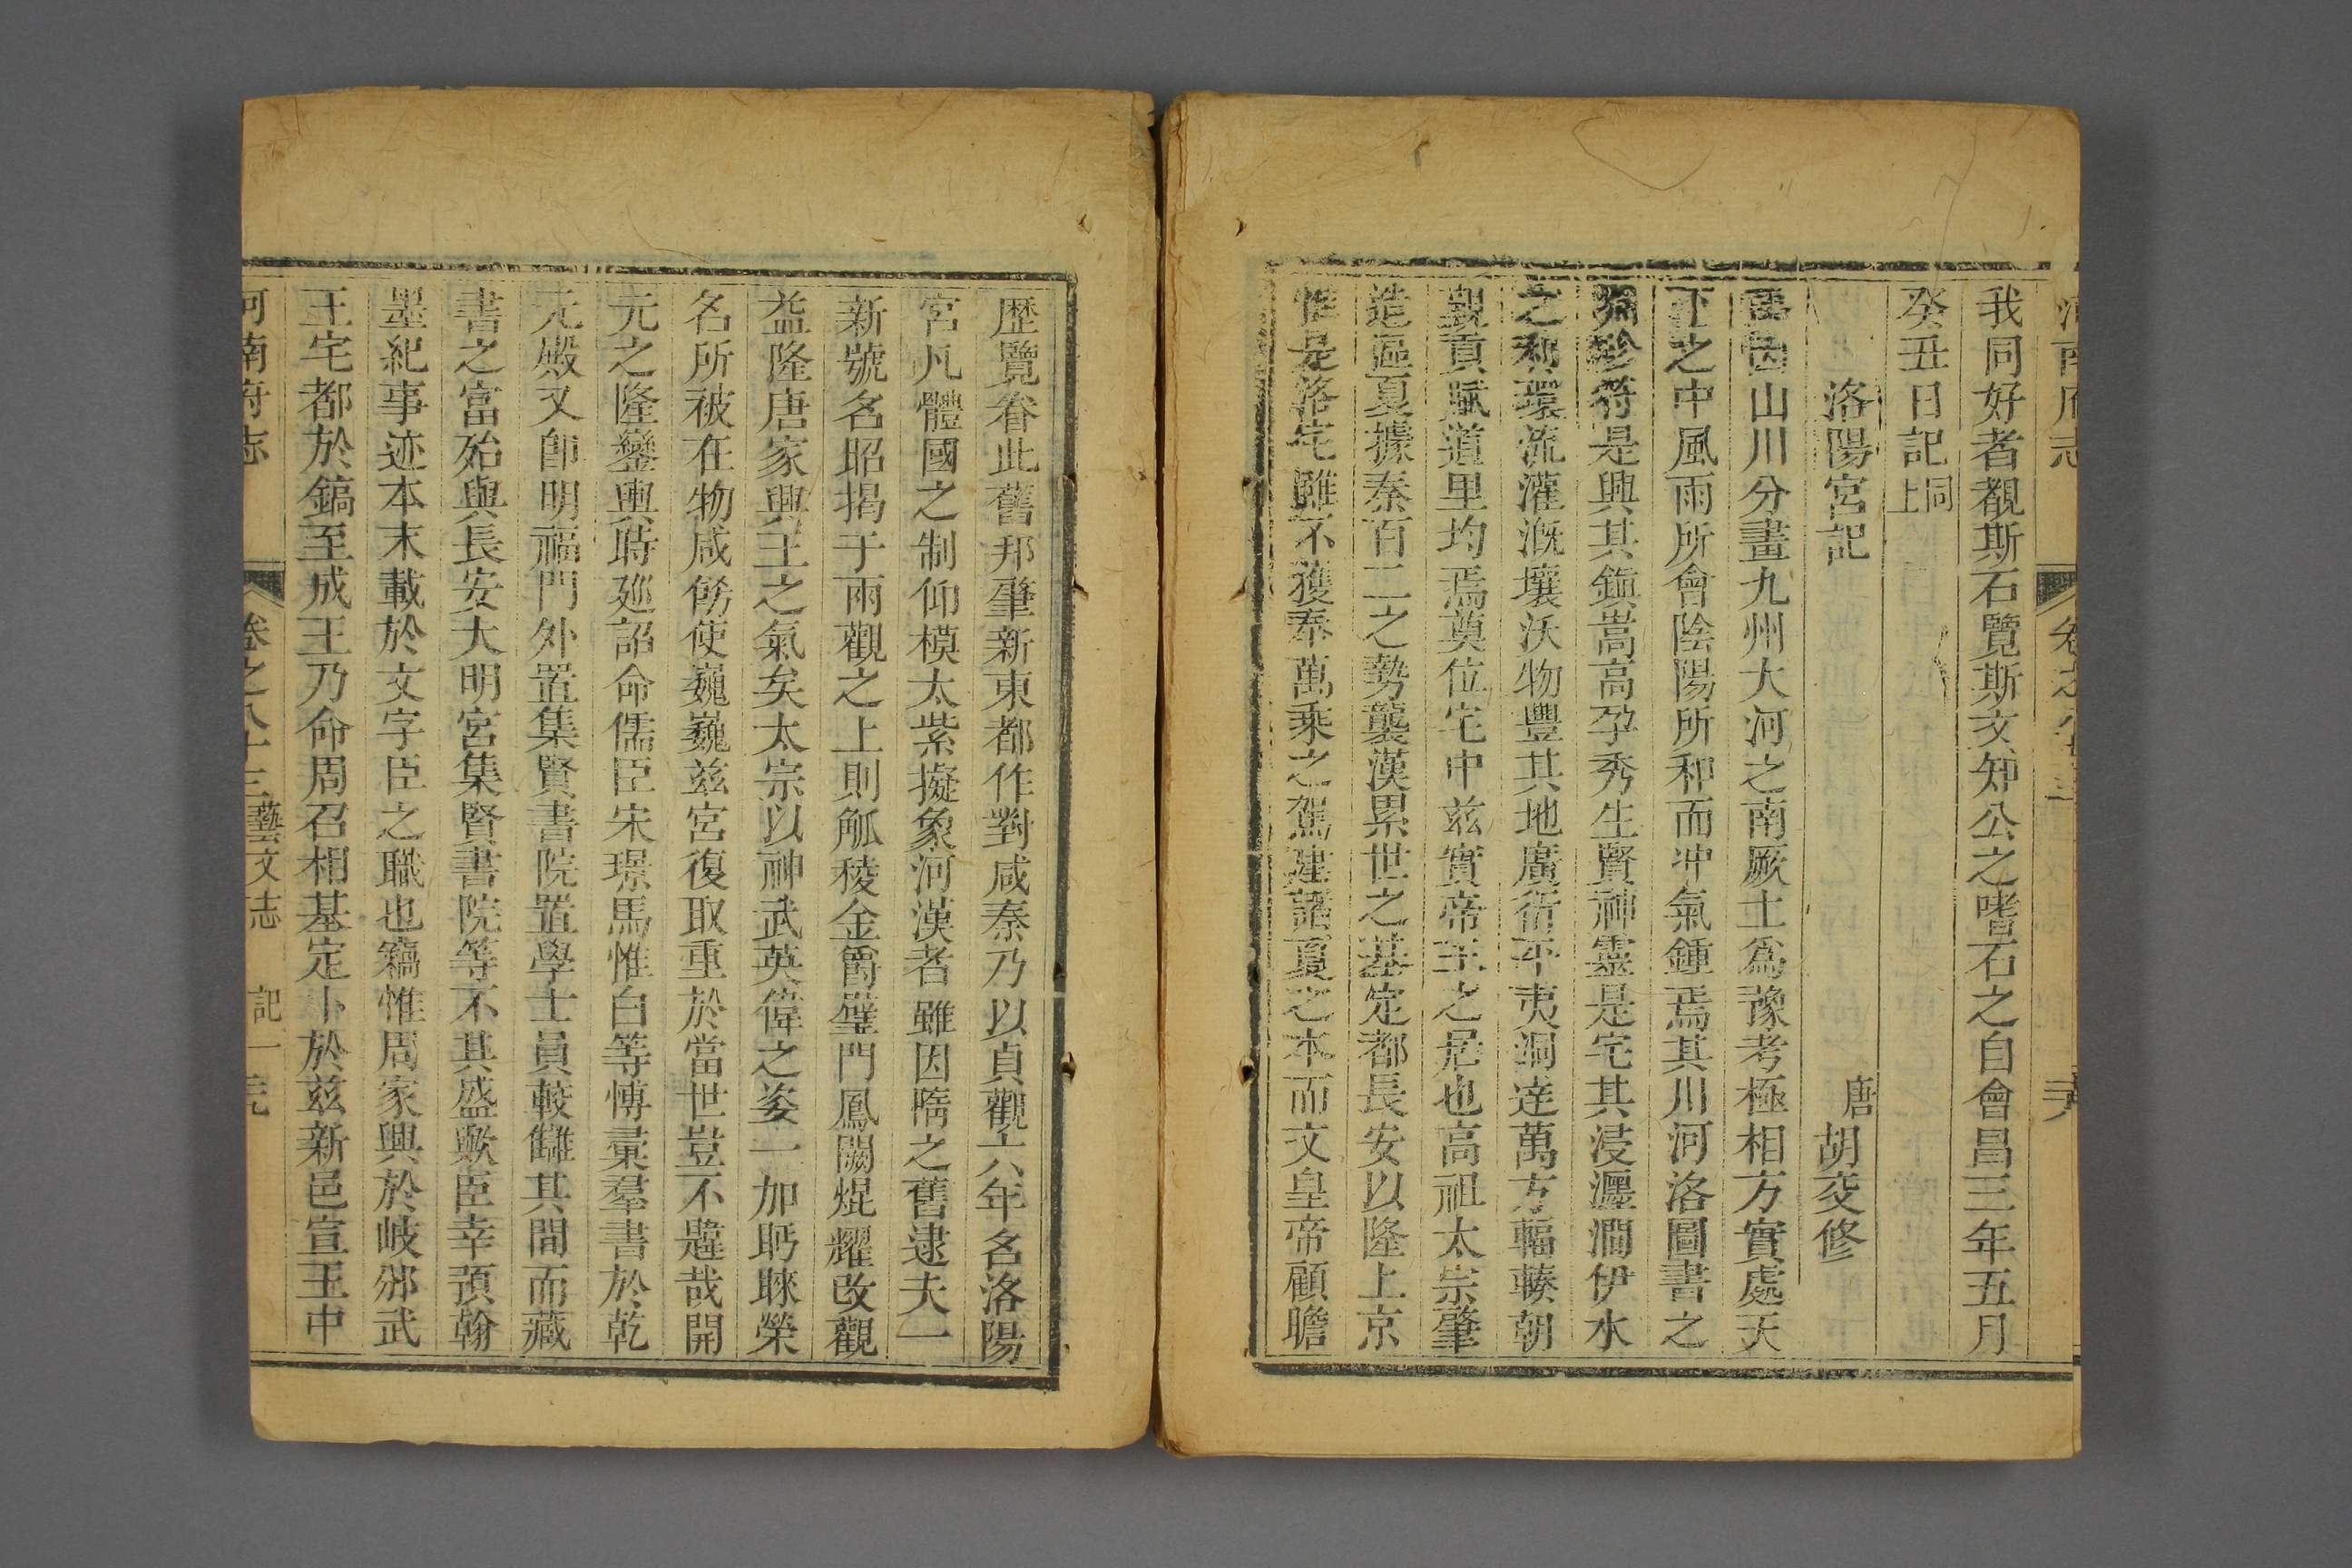 我同好者覩斯石覽斯文知公之嗜石之自會昌三年五月
癸丑日記同上
洛陽宮記
唐胡交修
山川分畫九州大河之南厥土爲豫考極相方實處天
下之中風雨所會陰陽所和而冲氣鍾焉其川河洛圖書之
淵珍符是興其鎭嵩高孕秀生賢神靈是宅其浸瀍澗伊水
之利環流灌漑壤沃物豐其地廣衍平夷洞達萬方輻輳朝
覲貢賦道里均焉奠位宅中兹實帝王之居也高祖太宗肇
造區夏據秦百二之勢襲漢累世之基定都長安以隆上京
惟是洛宅雖不獲奉萬乘之駕建諸夏之本而文皇帝顧瞻
歷覽眷此舊邦肇新東都作對咸秦乃以貞觀六年名洛陽
宮凡體國之制仰模太紫擬象河漢者雖因隋之舊逮夫一
新號名昭揭于兩觀之上則觚稜金爵璧門鳳闕焜耀改觀
益隆唐家興王之氣矣太宗以神武英偉之姿一加眄睞榮
名所被在物咸傍使巍巍兹宮復取重於當世豈不韙哉開
元之隆鑾輿時廵詔命儒臣宋璟馬惟白等博彙羣書於乾
元殿又卽明福門外置集賢書院置學士員較讎其間而藏
書之富殆與長安大明宮集賢書院等不其盛歟臣幸預翰
墨紀事迹本末載於文字臣之職也竊惟周家興於岐邠武
王宅都於鎬至成王乃命周召相基定卜於兹新邑宣王中
河南府志 卷之八十三藝文志 記一